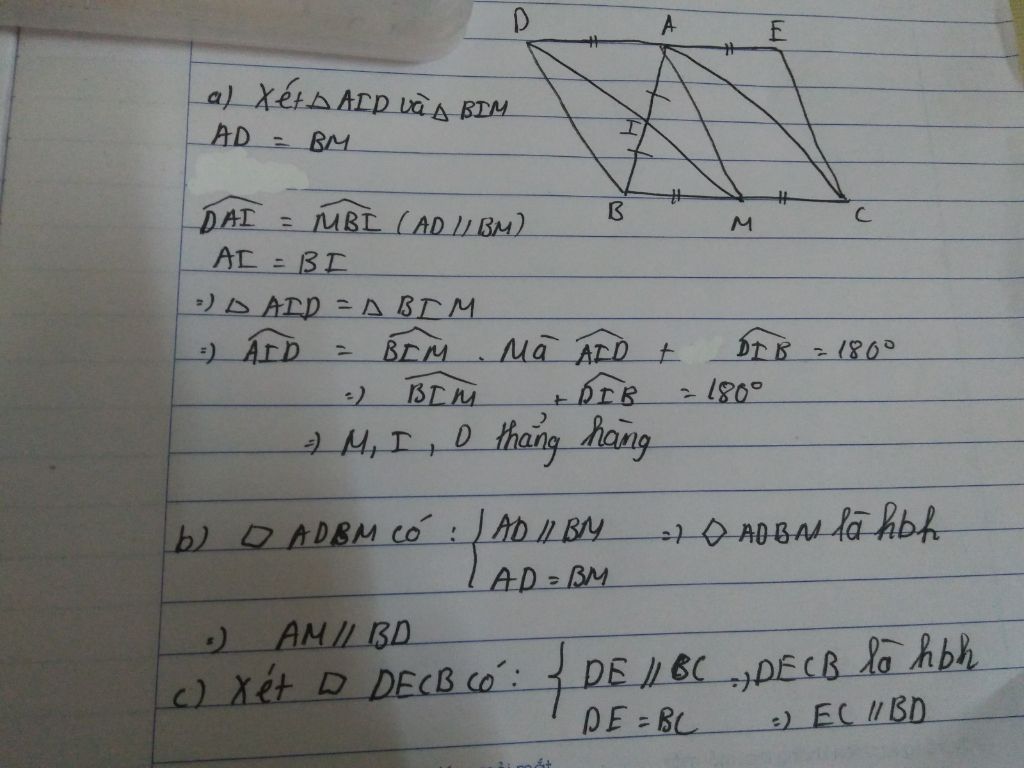 D A E
a) Xét △ AID và △ BIM
AD = BM
I
B M C
$\widehat{DAI}$ = $\widehat{MBI}$ (AD // BM)
AI = BI
=) △ AID = △ BIM
=) $\widehat{AID}$ = $\widehat{BIM}$ . Mà $\widehat{AID}$ + $\widehat{DIB}$ = 180°
=) $\widehat{BIM}$ + $\widehat{DIB}$ = 180°
=) M, I, D thẳng hàng
b) ▱ ADBM có : { AD // BM =) ▱ ADBM là hbh
AD = BM
=) AM // BD
c) Xét ▱ DECB có : { DE // BC =) DECB là hbh
DE = BC =) EC // BD